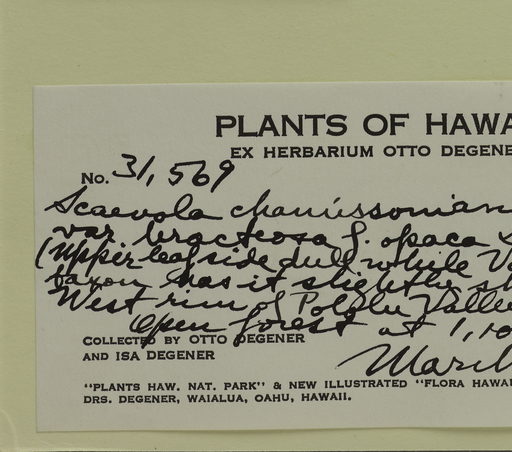 PLANTS OF HAWA
EX HERBARIUM OTTO DEGENE
No. 31,569
Scaevola chamissonian
var bracteosa f. opaca
(Upper leaf side dull while Va
taxon has it slightly sh
West rim of Pololu Valle
Open forest at 1,10
COLLECTED BY OTTO DEGENER
AND ISA DEGENER
"PLANTS HAW. NAT. PARK" & NEW ILLUSTRATED "FLORA HAWAI
DRS. DEGENER, WAIALUA, OAHU, HAWAII.